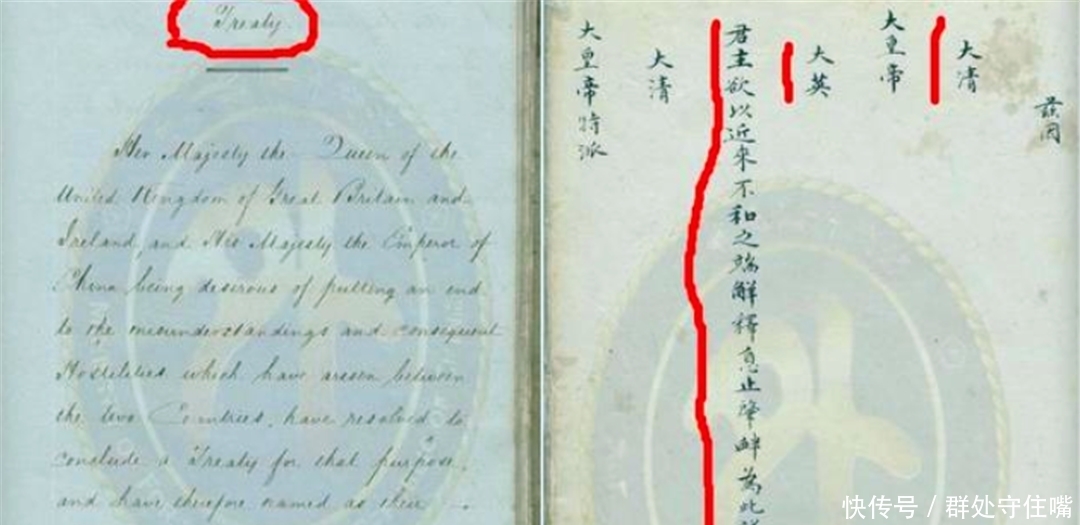 Treaty
Her Majesty the Queen of the
United Kingdom of Great Britain and
Ireland, and His Majesty the Emperor of
China being desirous of putting an end
to the misunderstandings and consequent
Hostilities which have arisen between
the two Countries, have resolved to
conclude a Treaty for that purpose,
and have therefore named as their
茲因
大清
大皇帝
大英
君主欲以近來不和之端解釋息止肇衅為此
大清
大皇帝特派
快传号/群处守住嘴